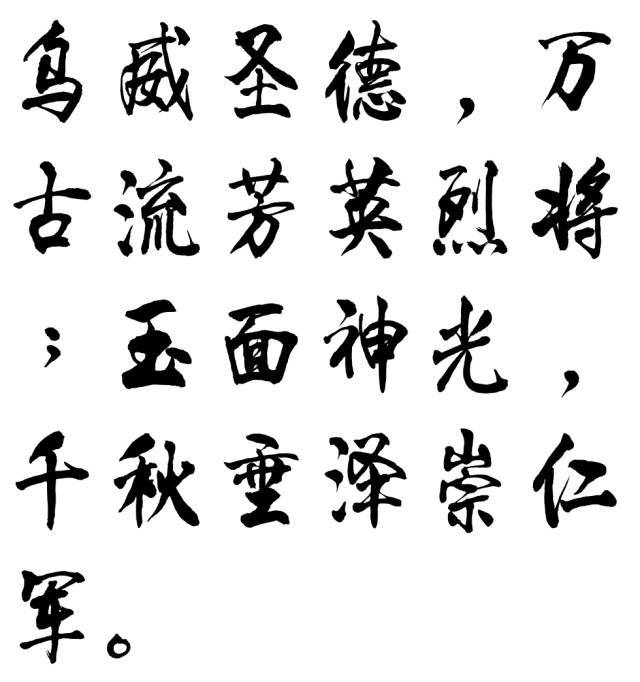 乌威圣德，万
古流芳英烈将
；玉面神光，
千秋垂泽崇仁
军。